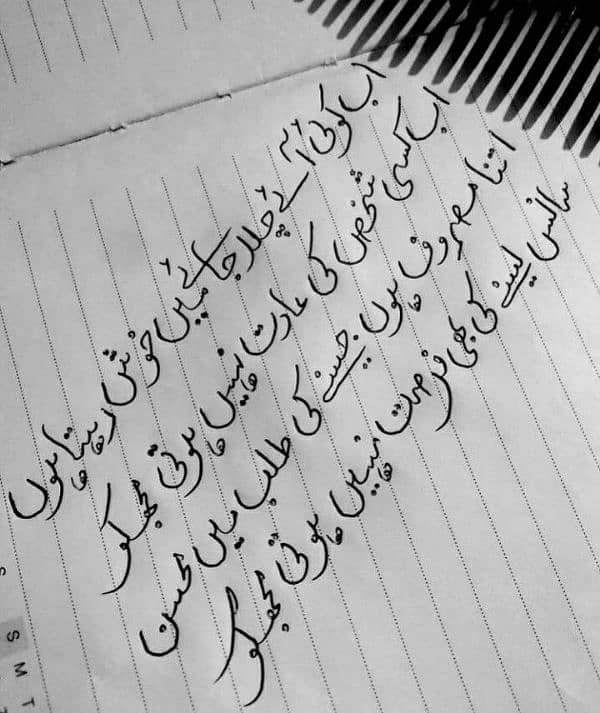 اب کوئی آئے چلا جائے میں خوش رہتا ہوں
اب کسی شخص کی عادت نہیں ہوتی مجھ کو
اتنا مصروف ہوں جینے کی طلب میں محسن
سانس لینے کی بھی فرصت نہیں ہوتی مجھ کو
S
S M T